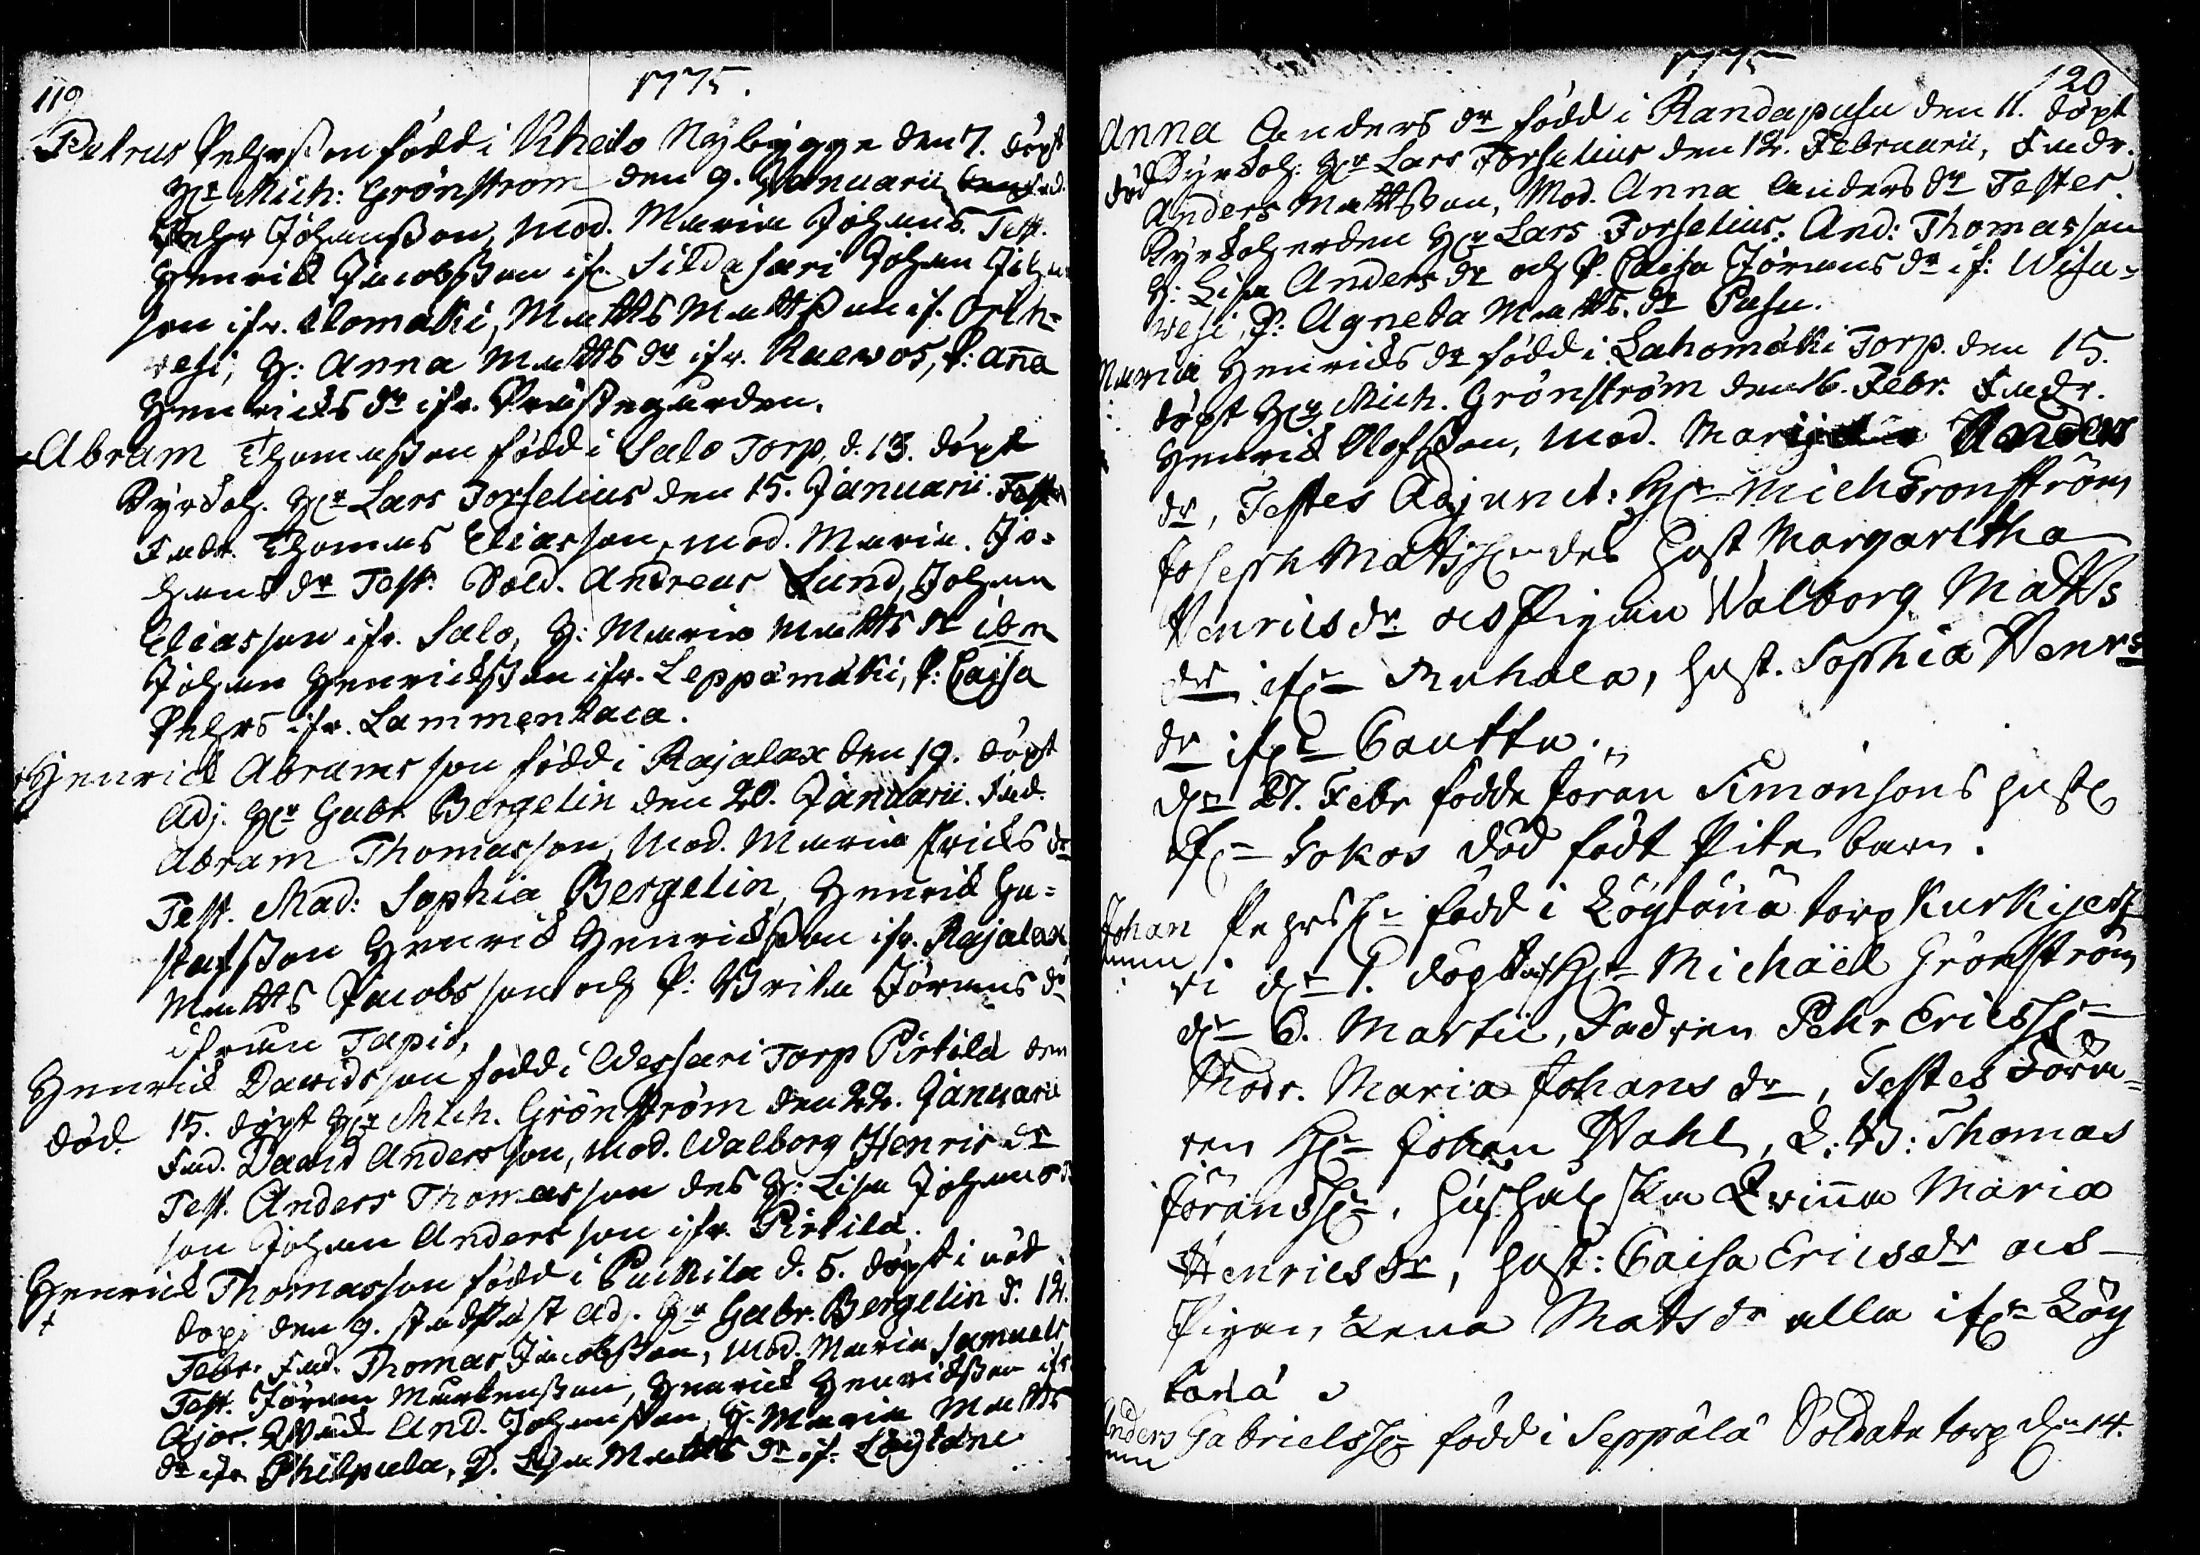 119
1775.
Petrus Pehrsson född i Uhelo Nybygge den 7. döpt
Hr Mich: Grönstrom den 9. Januarii Fad.
Pehr Johansson, Mod. Maria Johans. Test.
Henrick Jacobsson ifr. Sildasari Johan Johan
son ifr. Ilomäki, Matts Mattsson if. Orih=
wesi, H: Anna Matts dr ifr. Raewos, P: Aña
Henricks dr ifr. Prästegården.
Abram Thomasson född i Salo Torp, d. 13. döpt
Kyrkoh. Hr Lars Forselius den 15. Januarii.
Fadr. Thomas Eliasson, Mod. Maria. Jo=
hans dr Test. Sold. Andreas Lund, Johan
Eliasson ifr. Salo, H: Maria Matts dr ibm
Johan Henricksson ifr. Leppämäki, P: Caisa
Pehrs ifr. Lammentaca.
Henrick Abramsson född i Rajalax den 19. döpt
Adj. Hr Gabr. Bergelin den 20. Januarii. Fad.
Abram Thomasson, Mod. Maria Ericks dr
Test. Mad: Sophia Bergelin, Henrick Gu=
stafsson Henrick Henricksson ifr. Rajalax
Matts Jacobsson och P: Brita Jörans dr
ifrån Tapio.
Henrick Davidsson född i Wessari Torp Pirtilä den
död. 15. döpt Hr Mich. Grönström den 22. Januarii
Fad. David Andersson, Mod. Walborg Henric dr
Test. Anders Thomasson des H: Lisa Johans d
son Johan Andersson ifr. Pirtilä.
Henrick Thomasson född i Puckila d. 5. döpt i nöd
dop den 9. stadfäst Adj. Hr Gabr. Bergelin d. 12.
Febr. Fad. Thomas Jacobsson, Mod. Maria Samuels
Test. Jöran Mårtensson, Henrick Henricksson ifr
And. Johansson, H. Maria Matts
dr ifr. Philpula, P. Lisa Matts dr if. Löytäne
1775
120
Anna Anders dr född i Randapusu den 11. döpt
död Kyrkoh. Hr Lars Forselius den 12. Februarii, Fadr.
Anders Mattsson, Mod. Anna Anders dr Testes
Kyrkoherden Hr Lars Forselius. And: Thomasson
H: Lisa Anders dr och P. Caisa Jörans dr if: Wisu=
wesi, P: Agneta Matts. dr Pusu.
Maria Henricks dr född i Lahomäki Torp. den 15.
döpt Hr Mich. Grönström den 16. Febr. Fadr.
Henrick Olofsson, Mod. Maria Anders
dr, Testes Adjunct: Hr Mich Gronström
Joseph Matss des Hust Margaretha
Henricsdr och Pigan Walborg Matts
dr ifr Muhola, hust. Sophia Henrs
dr ifr Cautta.
dn 27. Febr födde Jöran Simonsons hustr
ifr Sokos död födt Pite barn.
Johan Pehrss född i Löytänä torp Kurkijerf
vi dn 1. döpt af Hr Michaël Grönström
dn 6. Martii, Fadren Pehr Ericss
Modr. Maria Johans dr, Testes Förn=
ren Hr Johan Wahl, L: B: Thomas
Jöranss, hushålskan Qwiñn Maria
Henricsdr, hust: Caisa Ericsdr och
Pigan Lena Mats dr alla ifr Löy
tänä
Anders Gabrielss född i Seppälä Soldate torp dn 14.